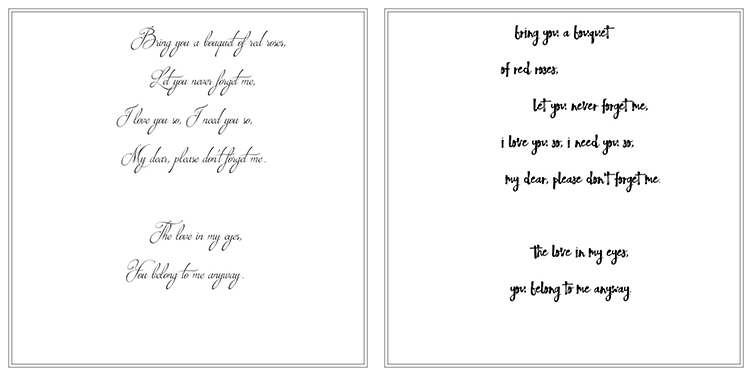 Bring you a bouquet of red roses,
Let you never forget me,
I love you so, I need you so,
My dear, please don't forget me.
The love in my eyes,
You belong to me anyway.
bring you a bouquet
of red roses,
let you never forget me,
i love you so, i need you so,
my dear, please don't forget me.
the love in my eyes,
you belong to me anyway.